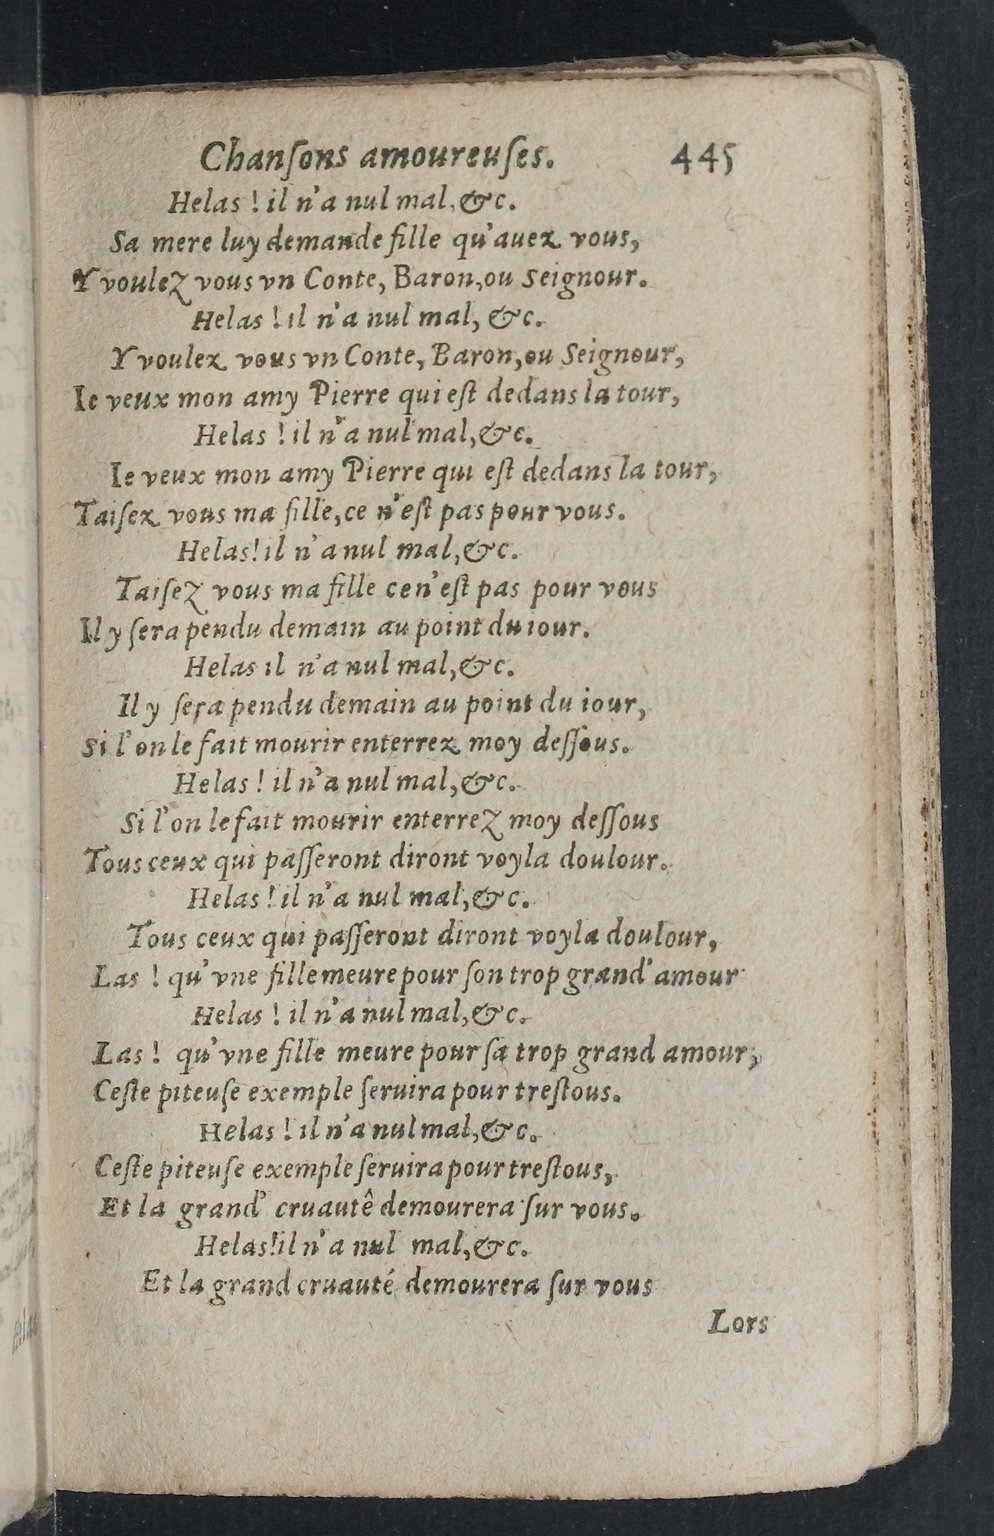 Chanſons amoureuſes. 445
Helas ! il n'a nul mal, &c.
Sa mere luy demande fille qu'auez vous,
Y voulez vous vn Conte, Baron, ou Seignour.
Helas ! il n'a nul mal, &c.
Y voulez vous vn Conte, Baron, ou Seignour,
Ie veux mon amy Pierre qui eſt dedans la tour,
Helas ! il n'a nul mal, &c.
Ie veux mon amy Pierre qui eſt dedans la tour,
Taiſez vous ma fille, ce n'eſt pas pour vous.
Helas! il n'a nul mal, &c.
Taiſez vous ma fille ce n'eſt pas pour vous
Il y ſera pendu demain au point du iour.
Helas il n'a nul mal, &c.
Il y ſera pendu demain au point du iour,
Si l'on le fait mourir enterrez moy deſſous.
Helas ! il n'a nul mal, &c.
Si l'on le fait mourir enterrez moy deſſous
Tous ceux qui paſſeront diront voyla doulour.
Helas ! il n'a nul mal, &c.
Tous ceux qui paſſeront diront voyla doulour,
Las ! qu'vne fille meure pour ſon trop grand' amour
Helas ! il n'a nul mal, &c.
Las ! qu'vne fille meure pour ſa trop grand amour,
Ceſte piteuſe exemple ſeruira pour treſtous.
Helas ! il n'a nul mal, &c.
Ceſte piteuſe exemple ſeruira pour treſtous,
Et la grand' cruautê demourera ſur vous.
Helas! il n'a nul mal, &c.
Et la grand cruauté demourera ſur vous
Lors